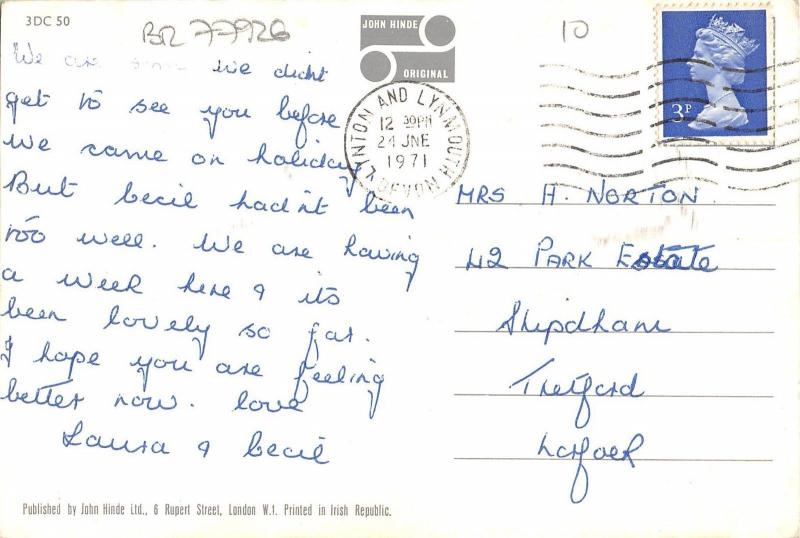 3DC 50
BR 77926
JOHN HINDE
ORIGINAL
10
We are we didnt
get to see you before
we came on holiday
But Cecil hadnt been
too well. We are having
a week here & its
been lovely so far.
I hope you are feeling
better now. love
Laura & Cecil
LYNTON AND LYNMOUTH
12 30PM
24 JNE
1971
DEVON
3P
MRS H. NORTON
42 PARK Estate
Shipdham
Thetford
Norfolk
Published by John Hinde Ltd., 6 Rupert Street, London W.1. Printed in Irish Republic.